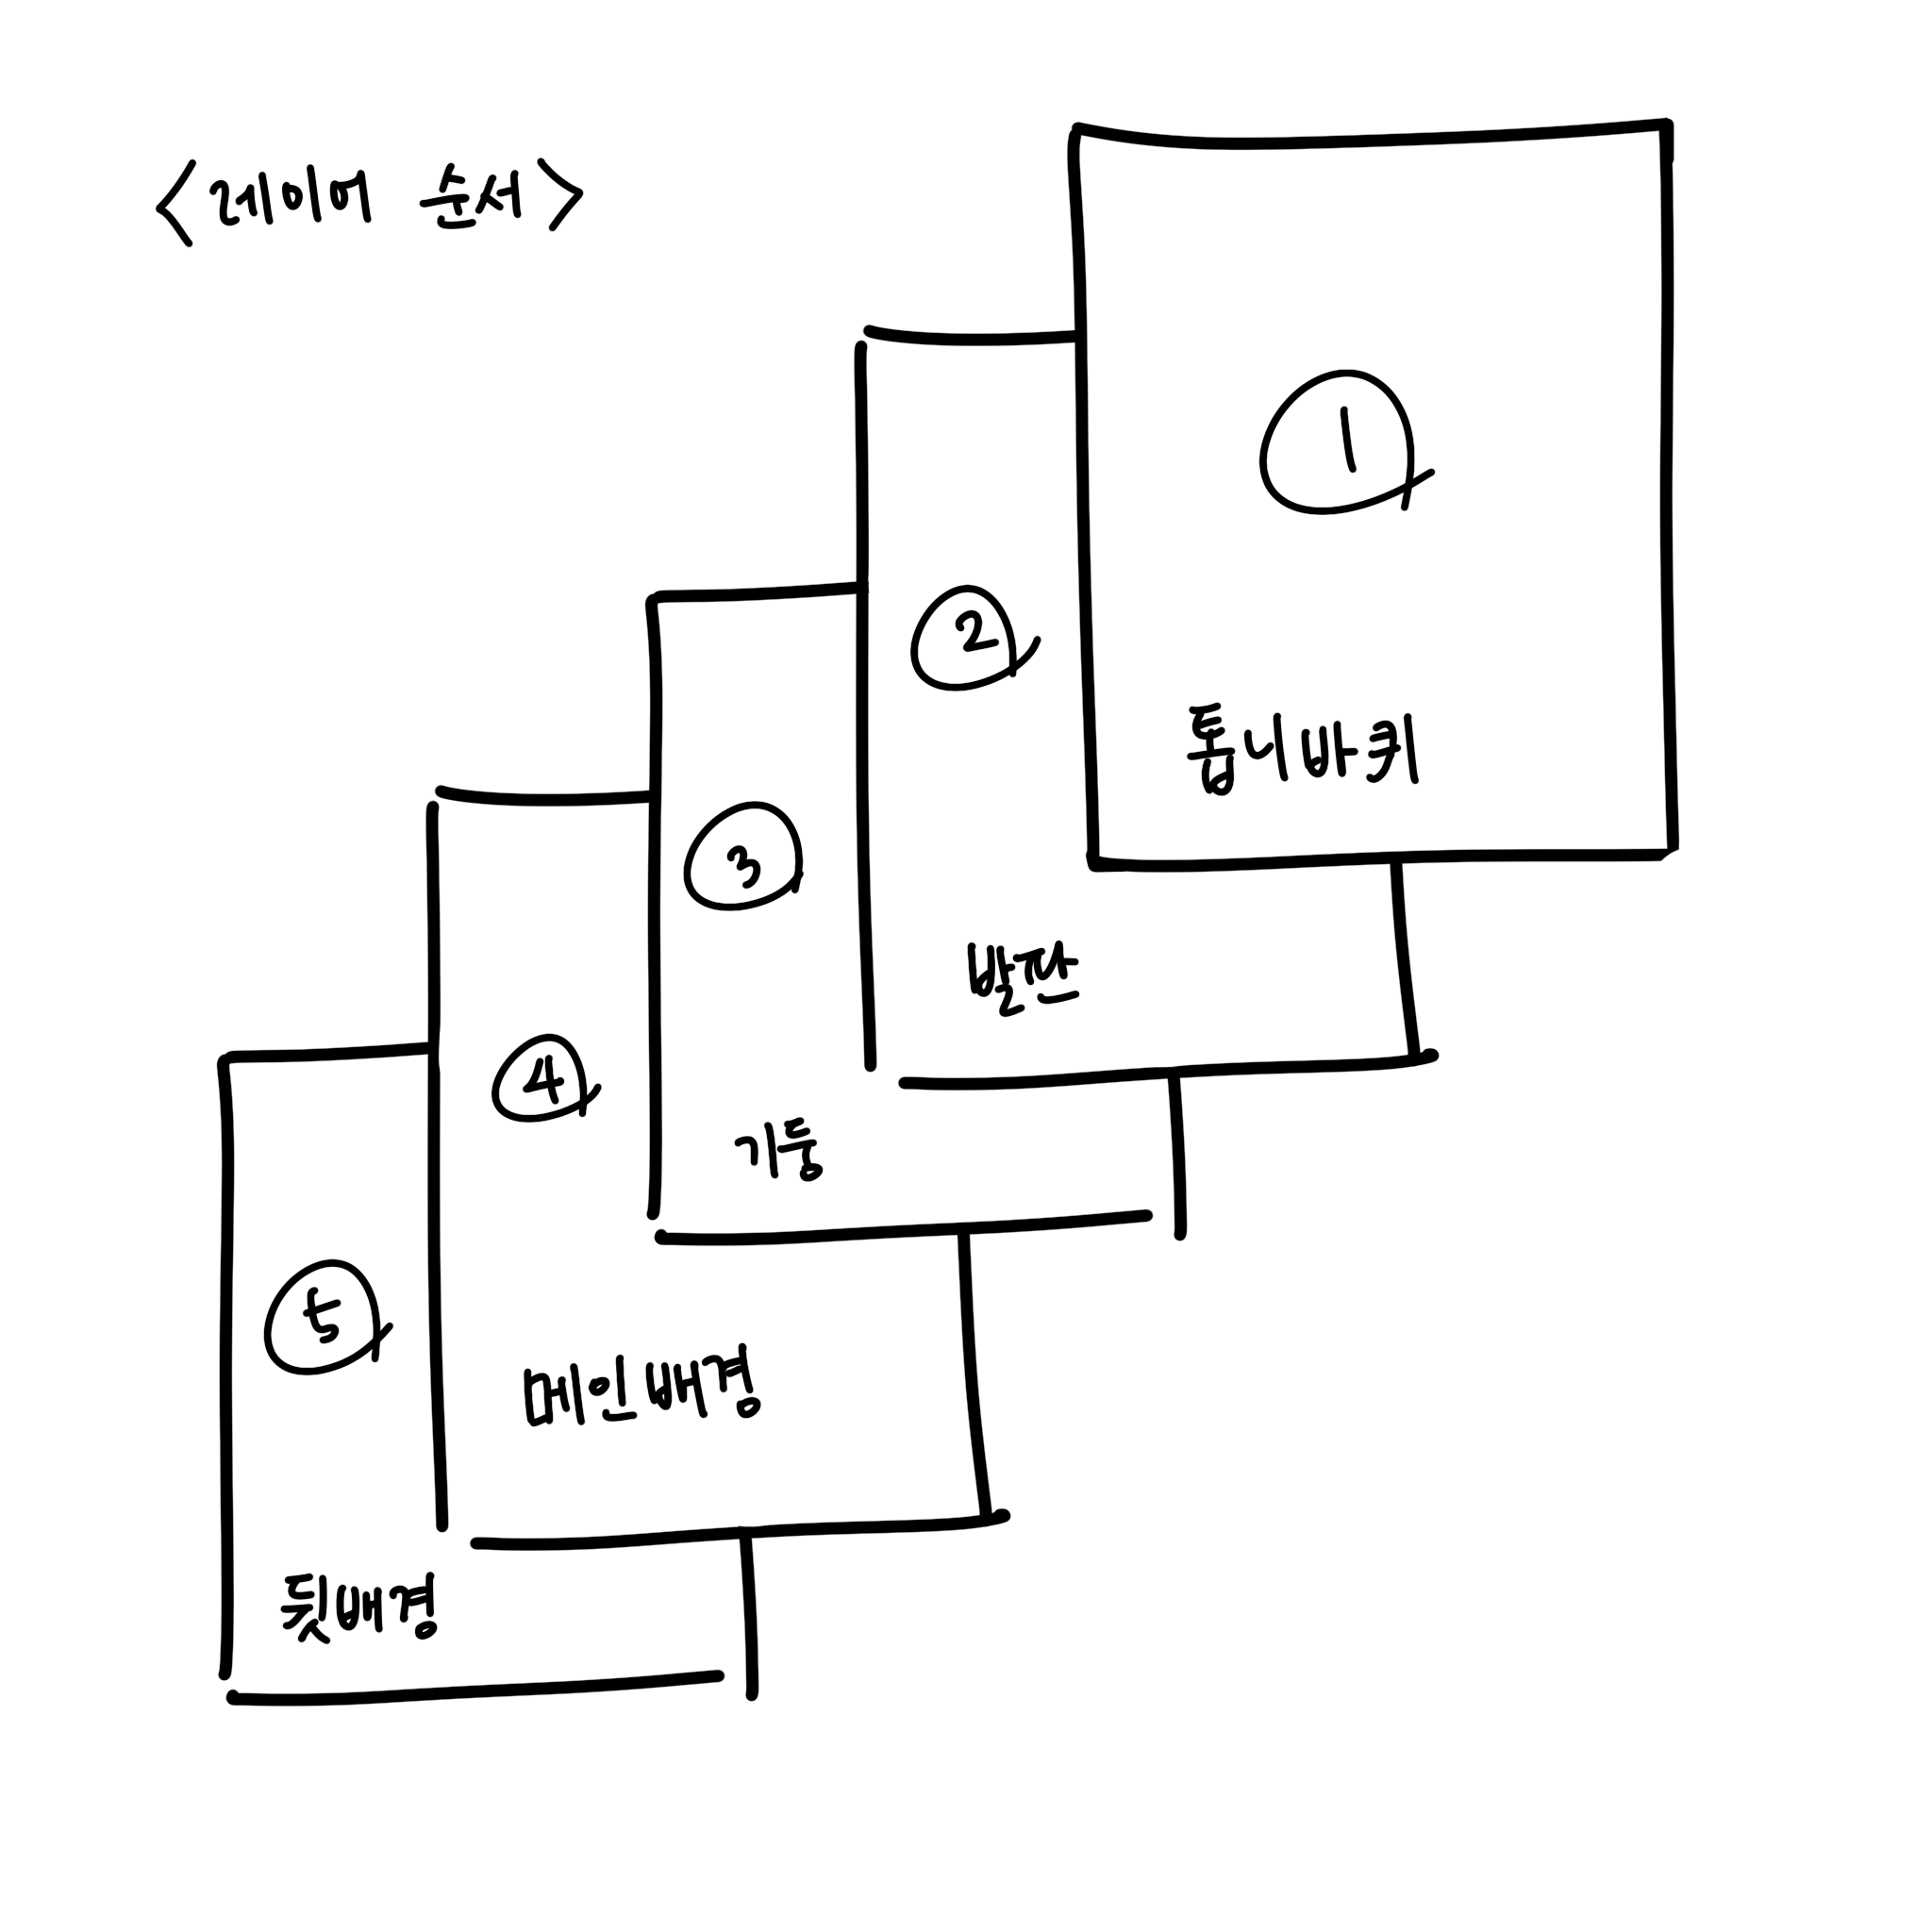 <레이어 순서>
1
톱니바퀴
2
발판
3
기둥
4
메인배경
5
뒷배경